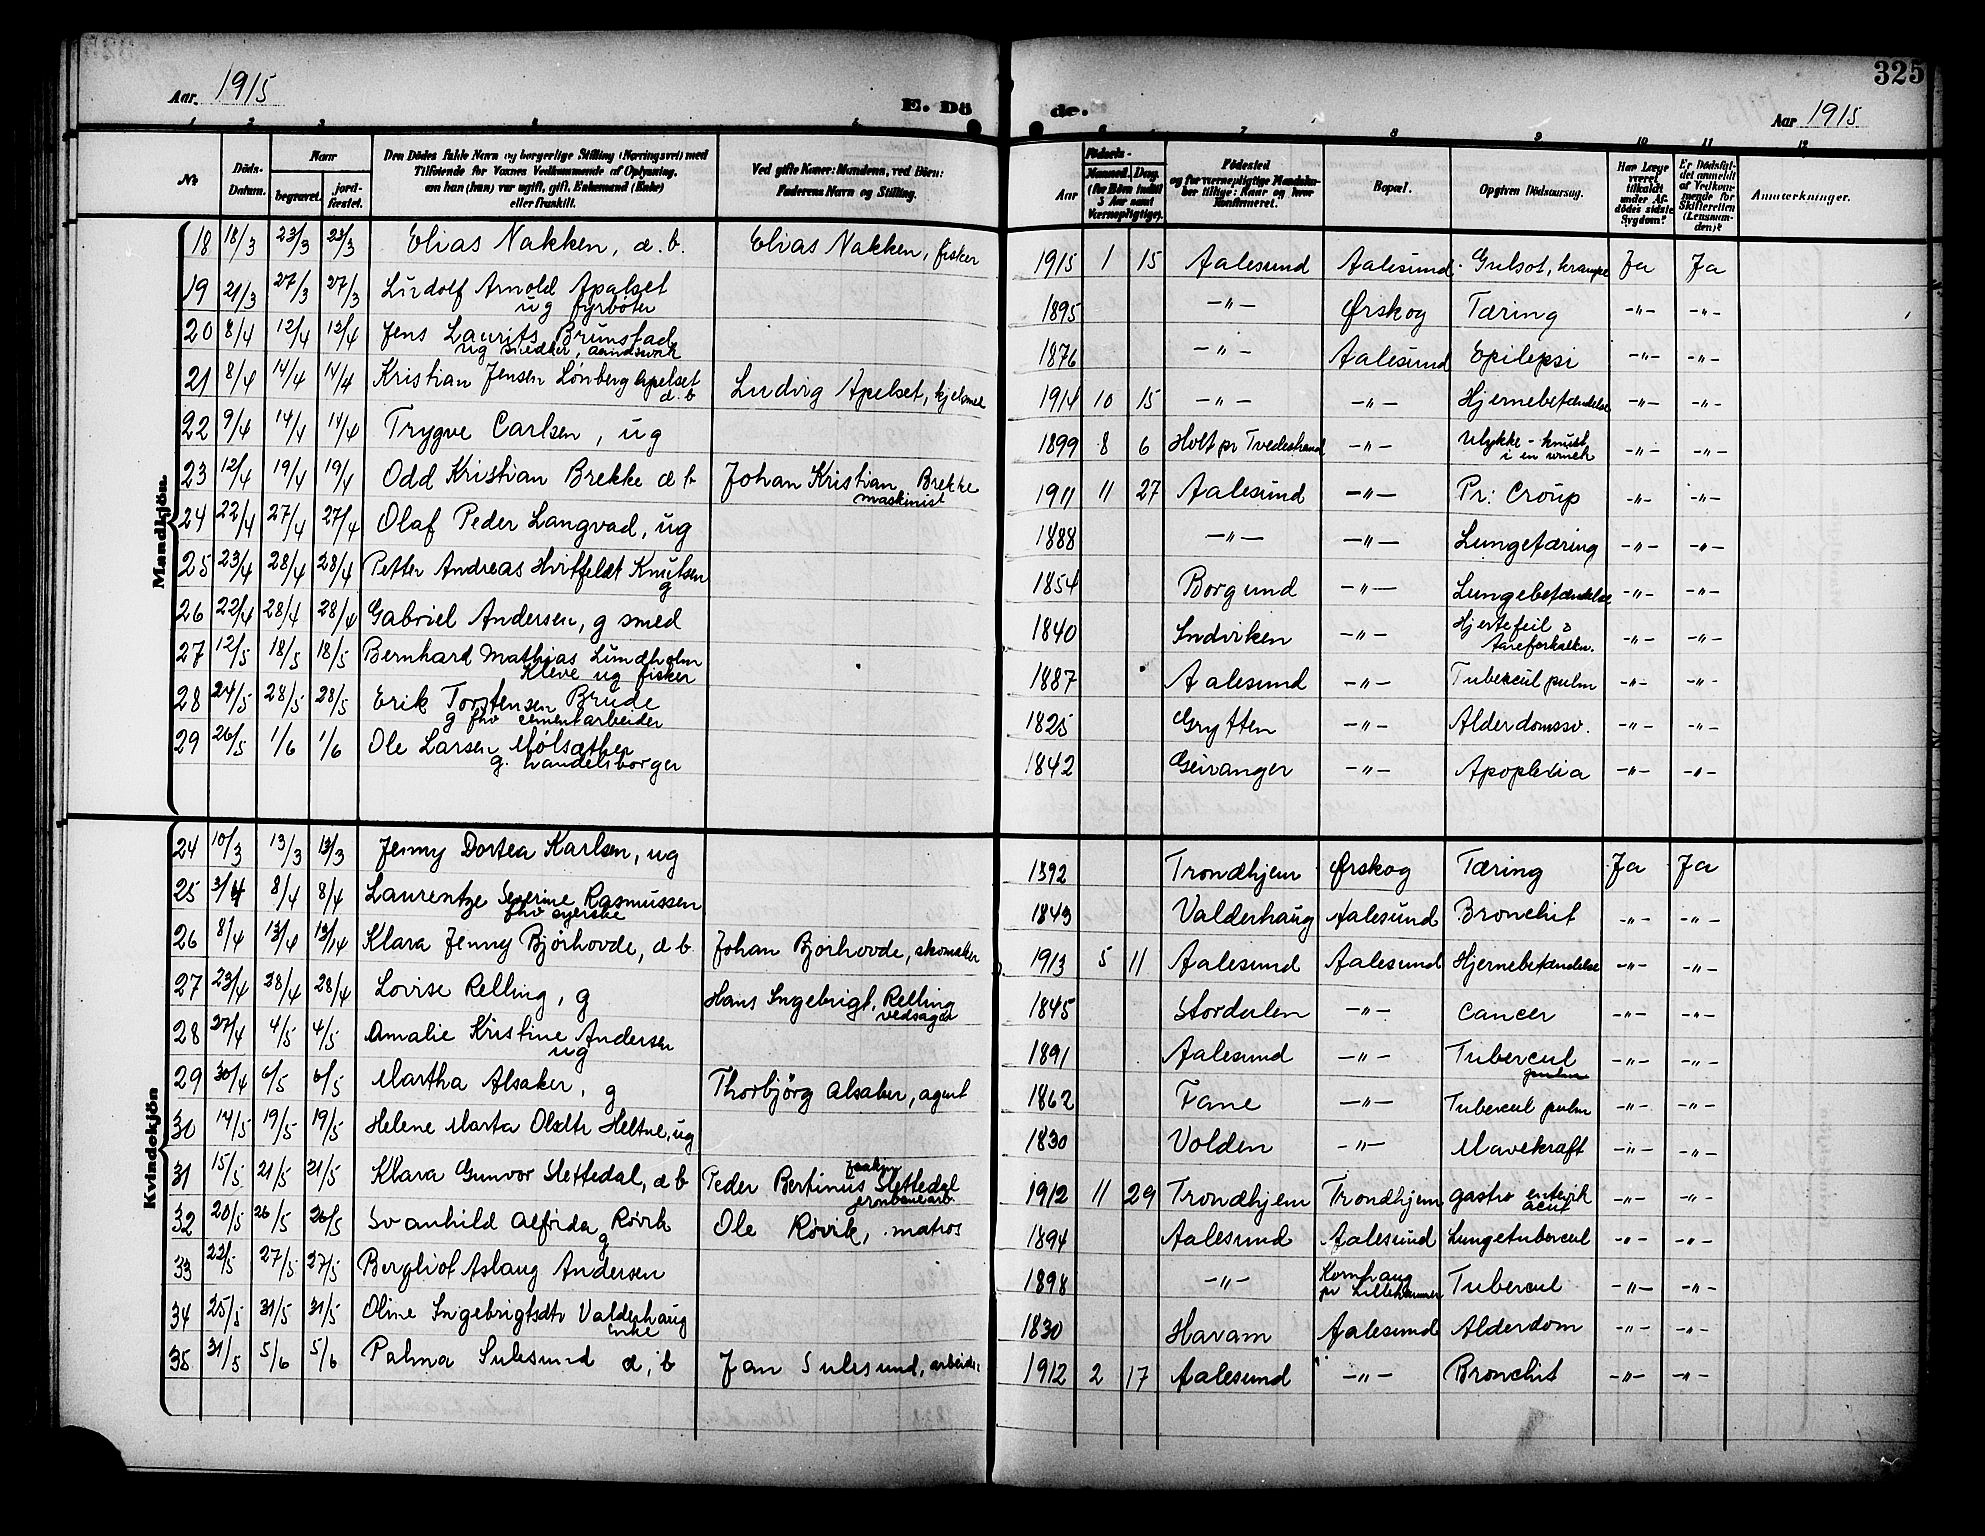 325
Aar. 1915 E. Dö de. Aar 1915
Nº
Döds-Datum.
Naar
begravet.
jord-fæstet.
Den Dödes fulde Navn og borgerlige Stilling (Næringsvei) med
Tilföiende for Voxnes Vedkommende af Oplysning,
om han (hun) var ugift, gift, Enkemand (Enke)
eller fraskilt.
Ved gifte Koner: Mandens, ved Börn:
Faderens Navn og Stilling.
Födsels-
Aar
Maaned. Dag.
(for Börn indtil
5 Aar samt
Værnepligtige).
Födested
og for værnepligtige Mandskaber tillige: Naar og hvor
Konfirmeret.
Bopæl.
Opgiven Dödsaarsag.
Har Læge
været
tilkaldt
under Afdödes sidste
Sygdom?
Er Dödsfaldet anmeldt
af Vedkommende for
Skifteretten
(Lensmanden)?
Anmærkninger.
Mandkjön.
18 18/3 23/3 23/3 Elias Nakken, d. b. Elias Nakken, fisker 1915 1 15 Aalesund Aalesund Gulsot, krampe Ja Ja
19 21/3 27/3 27/3 Ludolf Arnold Apalset 1895 -"- Ørskog Tæring -"- -"-
ug fyrbøter
20 8/4 12/4 12/4 Jens Laurits Brunstad 1876 -"- Aalesund Epilepsi -"- -"-
ug snedker, aandssvak
21 8/4 14/4 14/4 Kristian Jensen Lønberg Apelset Ludvig Apelset, kjelsmed 1914 10 15 -"- -"- Hjernebetændelse -"- -"-
d. b
22 9/4 14/4 14/4 Trygve Carlsen, ug 1899 8 6 Holt pr Tvedestrand -"- Ulykke - knust -"- -"-
i en winch
23 12/4 19/4 19/4 Odd Kristian Brekke d b Johan Kristian Brekke 1911 11 27 Aalesund -"- Pr: Croup -"- -"-
maskinist
24 22/4 27/4 27/4 Olaf Peder Langvad, ug 1888 -"- -"- Lungetæring -"- -"-
25 23/4 28/4 28/4 Petter Andreas Hvitfeldt Knutsen 1854 Borgund -"- Lungebetændelse -"- -"-
g
26 22/4 28/4 28/4 Gabriel Andersen, g smed 1840 Indviken -"- Hjertefeil & -"- -"-
Aareforkalkn.
27 12/5 18/5 18/5 Bernhard Mathias Lundholm 1887 Aalesund -"- Tubercul pulm -"- -"-
Kleve ug fisker
28 24/5 28/5 28/5 Erik Torstensen Brude 1825 Grytten -"- Alderdomssv. -"- -"-
g fhv cementarbeider
29 26/5 1/6 1/6 Ole Larsen Mølsæther 1842 Geiranger -"- Apoplexia -"- -"-
g. handelsborger
Kvindekjön
24 10/3 13/3 13/3 Jenny Dortea Karlsen, ug 1892 Trondhjem Ørskog Tæring Ja Ja
25 3/4 8/4 8/4 Laurentze Severine Rasmussen 1843 Valderhaug Aalesund Bronchit -"- -"-
fhv syerske
26 8/4 13/4 13/4 Klara Jenny Bjørhovde, d b Johan Bjørhovde, skomaker 1913 5 11 Aalesund Aalesund Hjernebetændelse -"- -"-
27 23/4 28/4 28/4 Lovise Relling, g Hans Ingebrigt. Relling 1845 Stordalen -"- Cancer -"- -"-
vedsager
28 27/4 4/5 4/5 Amalie Kristine Andersen 1891 Aalesund -"- Tubercul -"- -"-
ug pulm
29 30/4 6/5 6/5 Martha Alsaker, g Thorbjørg Alsaker, agent 1862 Fane -"- Tubercul pulm -"- -"-
30 14/5 19/5 19/5 Helene Marta Olsdtr Heltne, ug 1830 Volden -"- Mavekræft -"- -"-
31 15/5 21/5 21/5 Klara Gunvor Slettedal, d b Peder Bertinus Joakim Slettedal 1912 11 29 Trondhjem Trondhjem gastro enterik -"- -"-
jernbanearb. acut
32 20/5 26/5 26/5 Svanhild Alfrida Røvik Ole Røvik, matros 1894 Aalesund Aalesund Lungetubercul -"- -"-
g
33 22/5 27/5 27/5 Bergliot Aslaug Andersen 1898 -"- Kornhaug Tubercul -"- -"-
pr Lillehammer
34 25/5 31/5 31/5 Oline Ingebrigtsdtr Valderhaug 1830 Haram Aalesund Alderdom -"- -"-
Enke
35 31/5 5/6 5/6 Palma Sulesund d, b Jan Sulesund, arbeider 1912 2 17 Aalesund -"- Bronchit -"- -"-